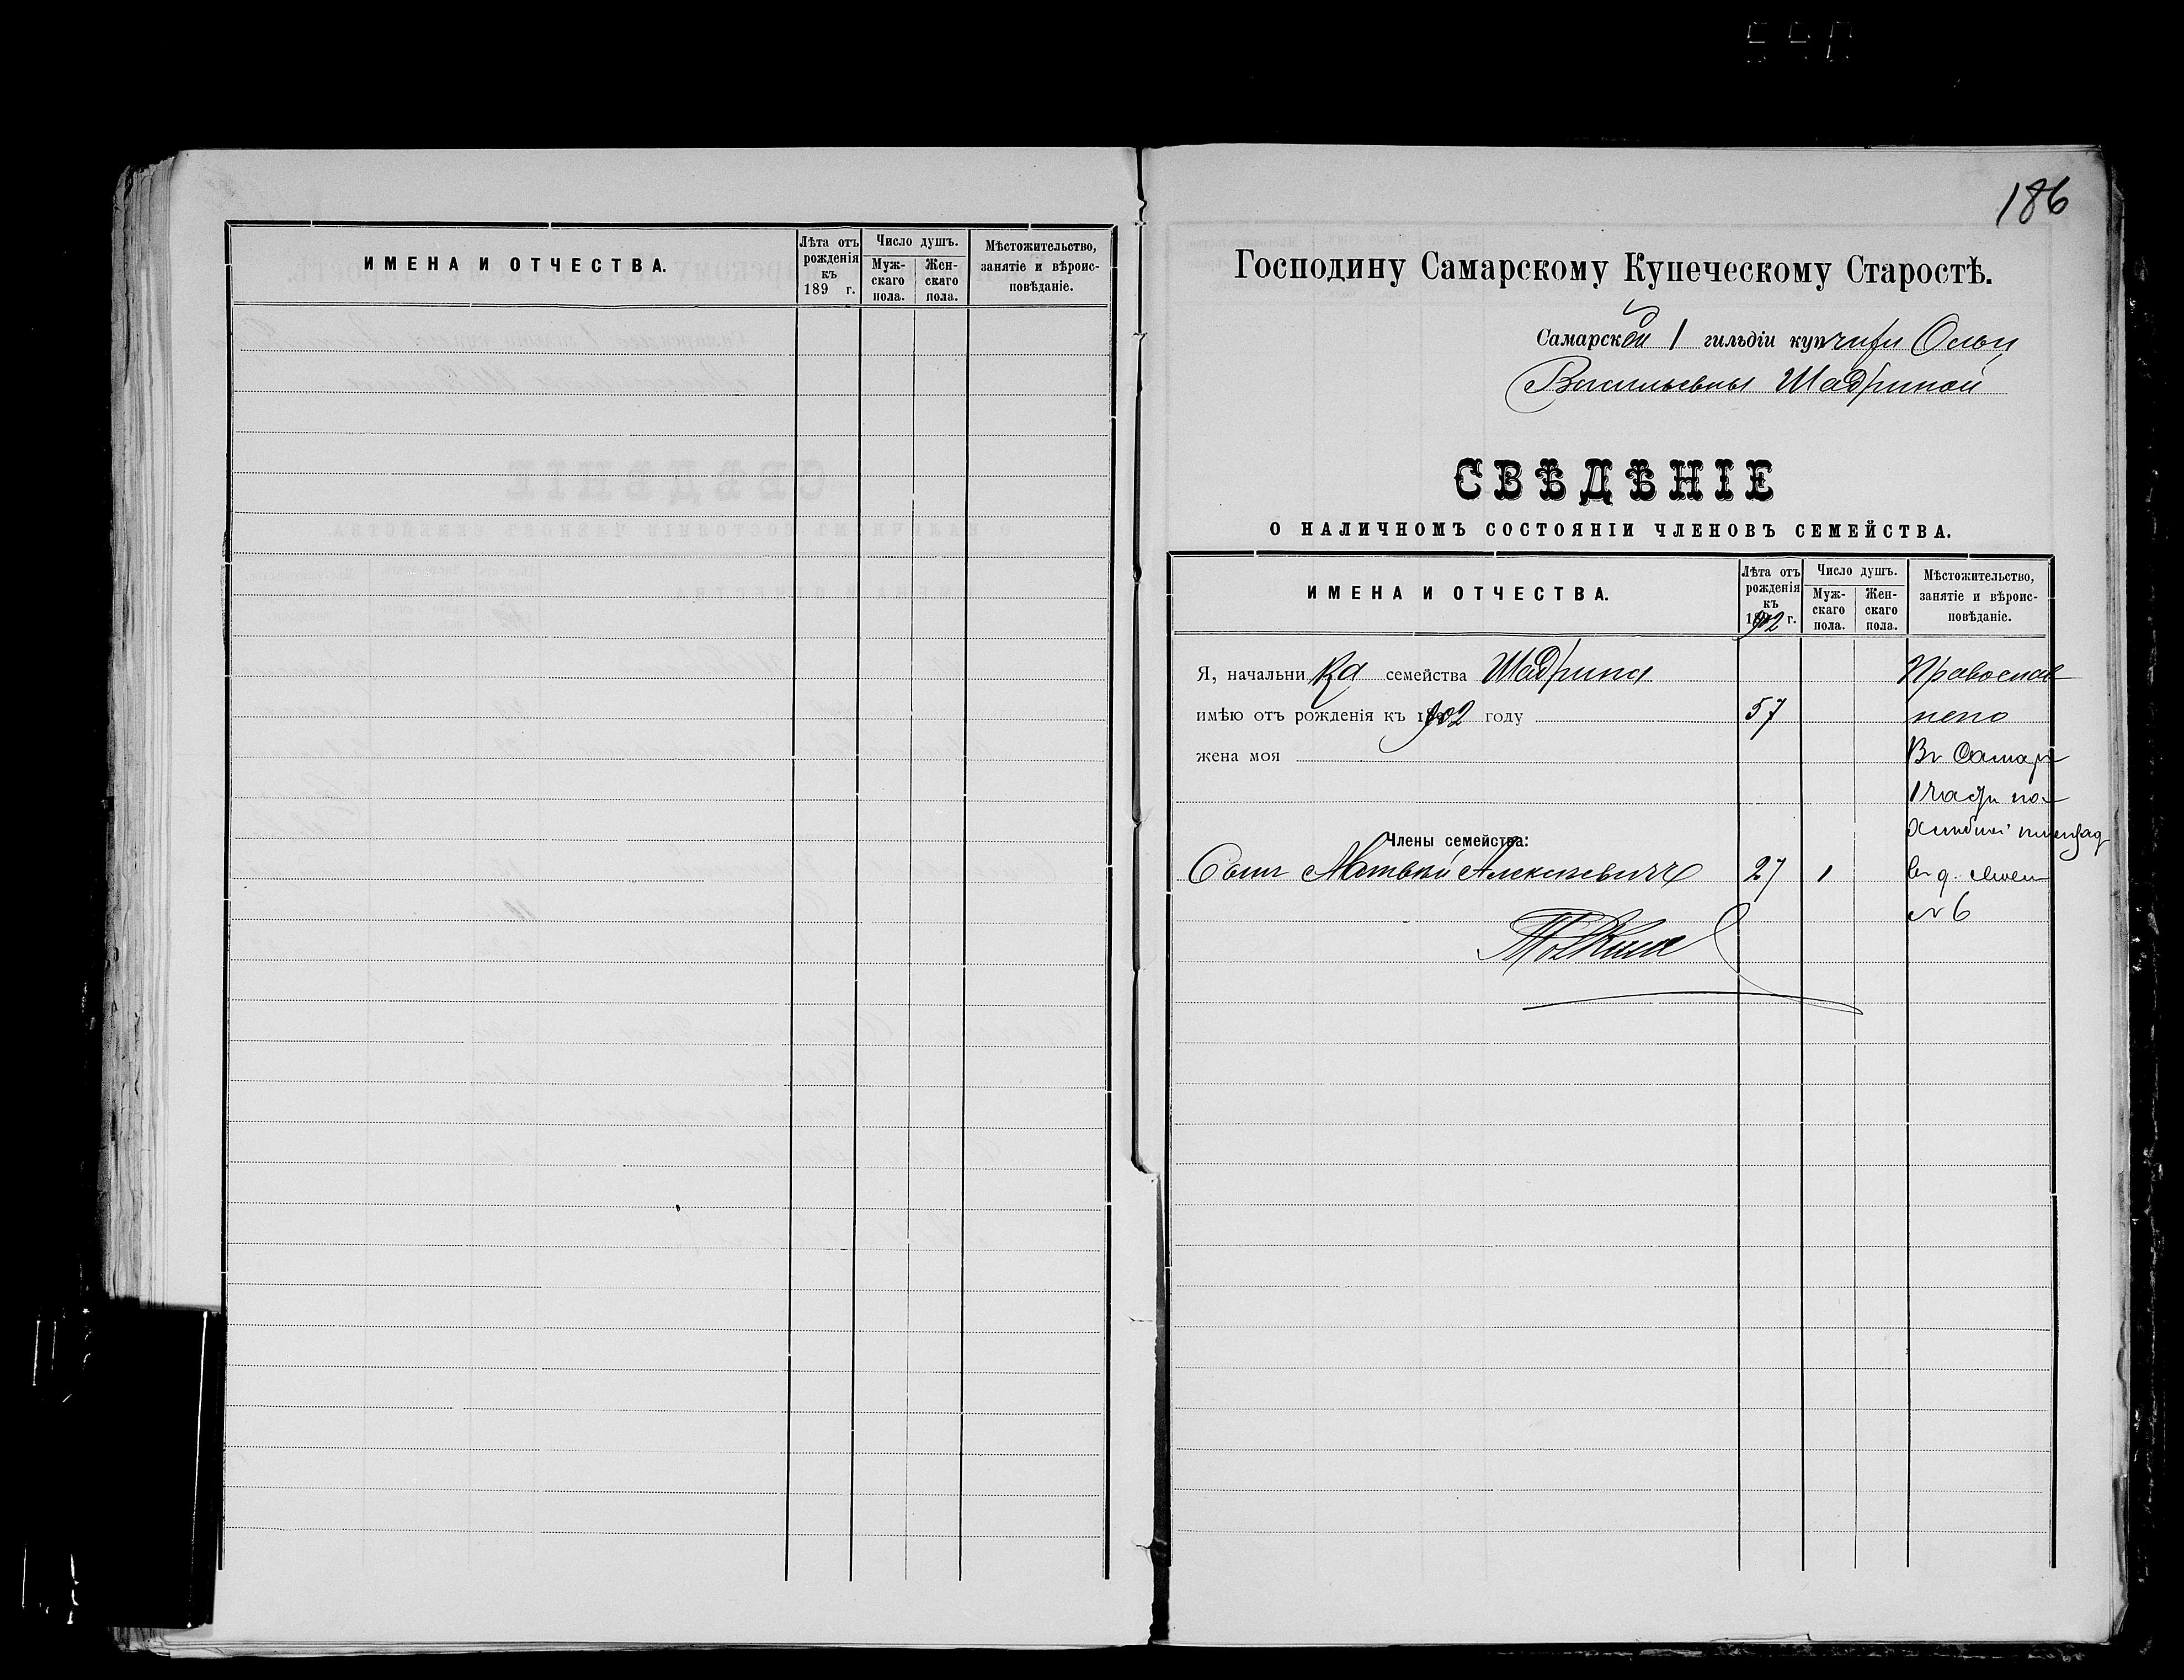 ИМЕНА И ОТЧЕСТВА.
Лѣта отъ рожденія къ 189 г.
Число душъ.
Муж-скаго пола.
Жен-скаго пола.
Мѣстожительство, занятіе и вѣроис-повѣданіе.
186
Господину Самарскому Купеческому Старостѣ.
Самарской 1 гильдіи купчихи Ольги
Васильевны Шадриной
СВѢДѢНІЕ
О НАЛИЧНОМЪ СОСТОЯНІИ ЧЛЕНОВЪ СЕМЕЙСТВА.
ИМЕНА И ОТЧЕСТВА.
Лѣта отъ рожденія къ 1902 г.
Число душъ.
Муж-скаго пола.
Жен-скаго пола.
Мѣстожительство, занятіе и вѣроис-повѣданіе.
Я, начальница семейства Шадрина Православ
имѣю отъ рожденія къ 1902 году 57
жена моя Въ Самарѣ
1 части на
Члены семейства: Хлебной площад
Сынъ Матвѣй Алексѣевичъ 27 1 въ д.
№ 6